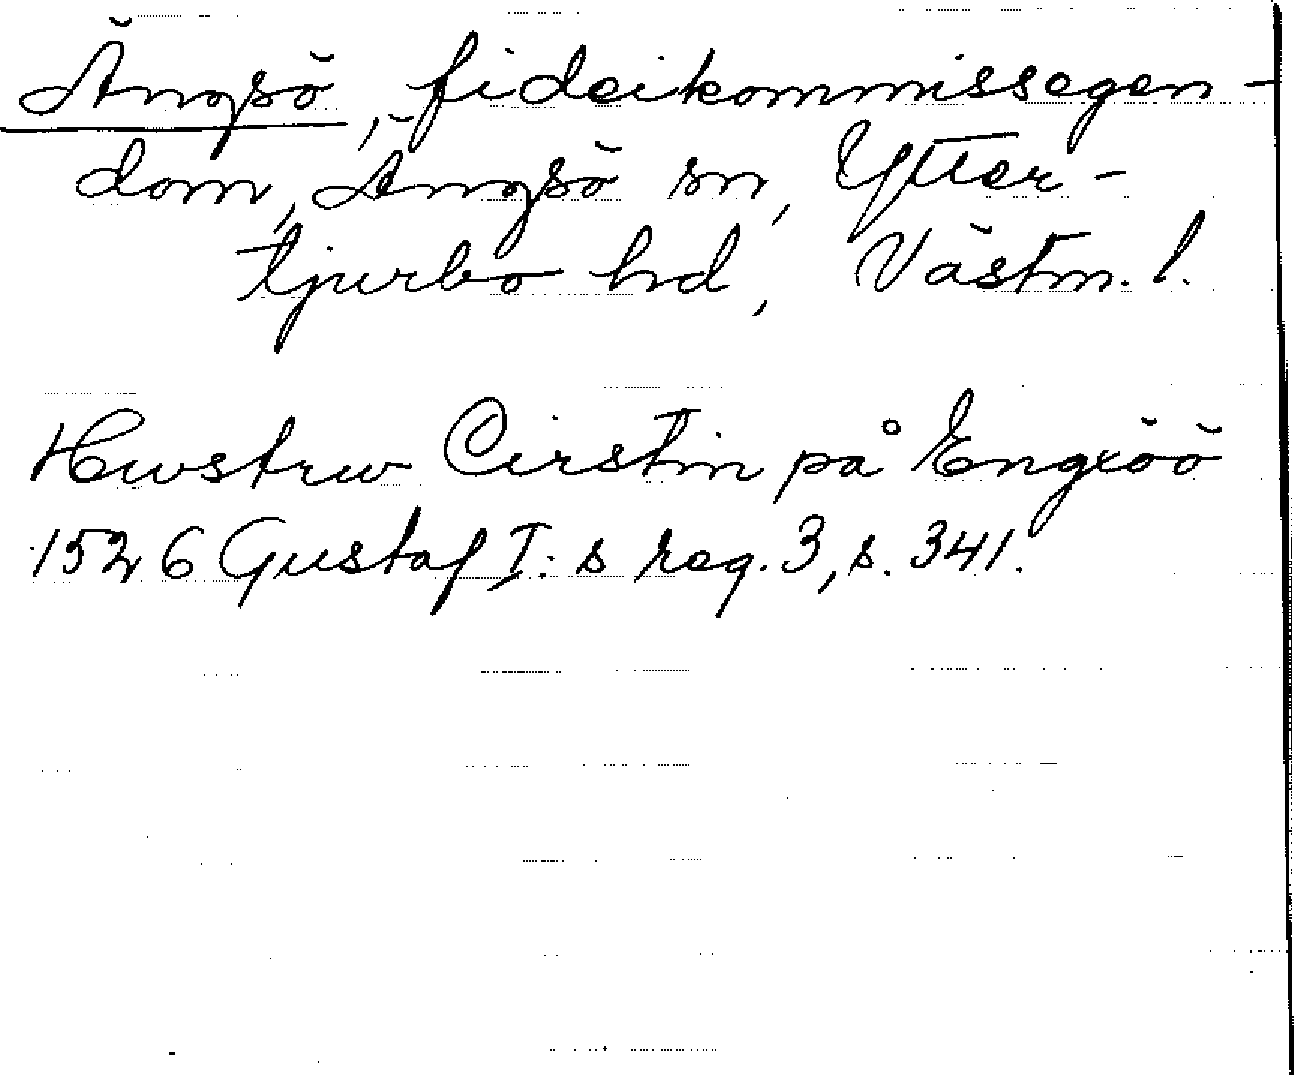 Ängsö, fideikommissegen-
dom, Ängsö sn, Ytter-
tjurbo hd, Västm. l.
Hwstrw Cirstin på Engxöö
1526 Gustaf I:s reg. 3, s. 341.